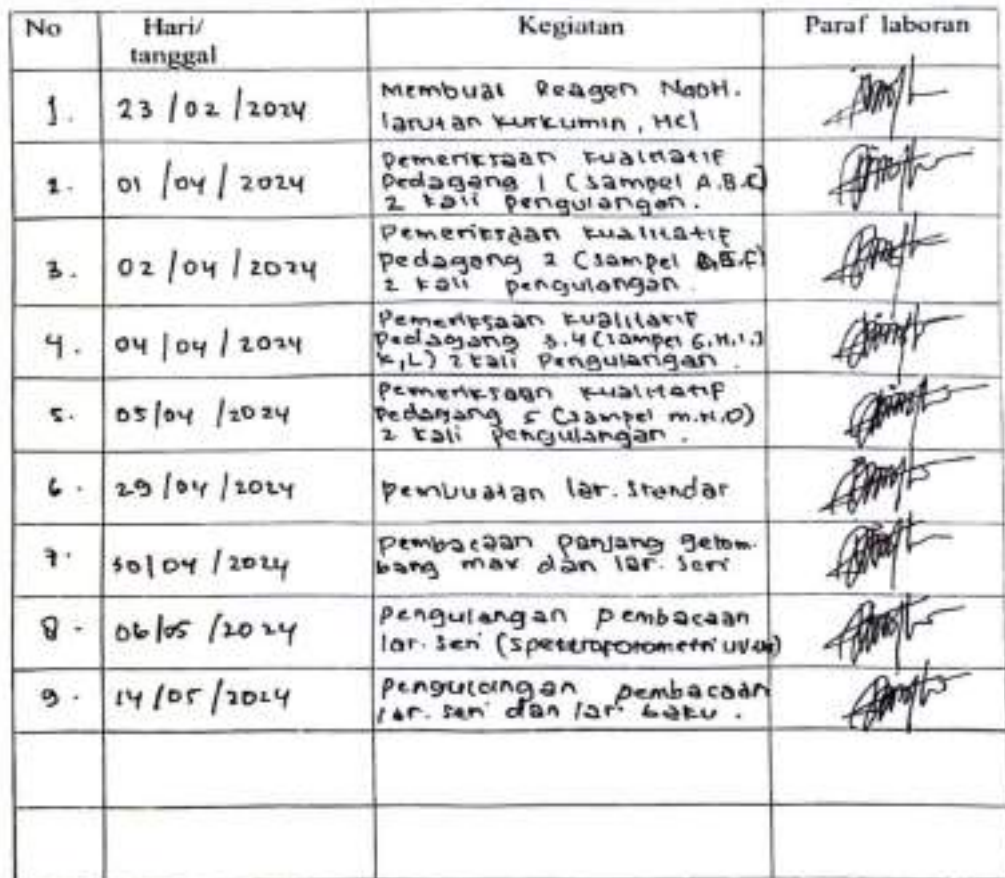 No Hari/ Kegiatan Paraf laboran
tanggal
1. 23/02/2024 Membuat Reagen NaOH.
larutan kurkumin, Hcl
2. 01/04/2024 Pemeriksaan kualitatif
Pedagang 1 (sampel A.B.C)
2 kali pengulangan.
3. 02/04/2024 Pemeriksaan kualitatif
pedagang 2 (sampel E.F)
2 kali pengulangan.
4. 04/04/2024 Pemeriksaan kualitatif
Pedagang 3.4 (sampel G.H.I.J
K,L) 2 kali Pengulangan.
5. 05/04/2024 Pemeriksaan kualitatif
Pedagang 5 (sampel M.N.O)
2 kali pengulangan.
6. 29/04/2024 pembuatan lar. standar
7. 30/04/2024 pembacaan panjang gelom-
bang max dan lar. seri
8. 06/05/2024 pengulangan pembacaan
lar. seri (spektrofotometri
9. 14/05/2024 pengulangan pembacaan
lar. seri dan lar. baku.